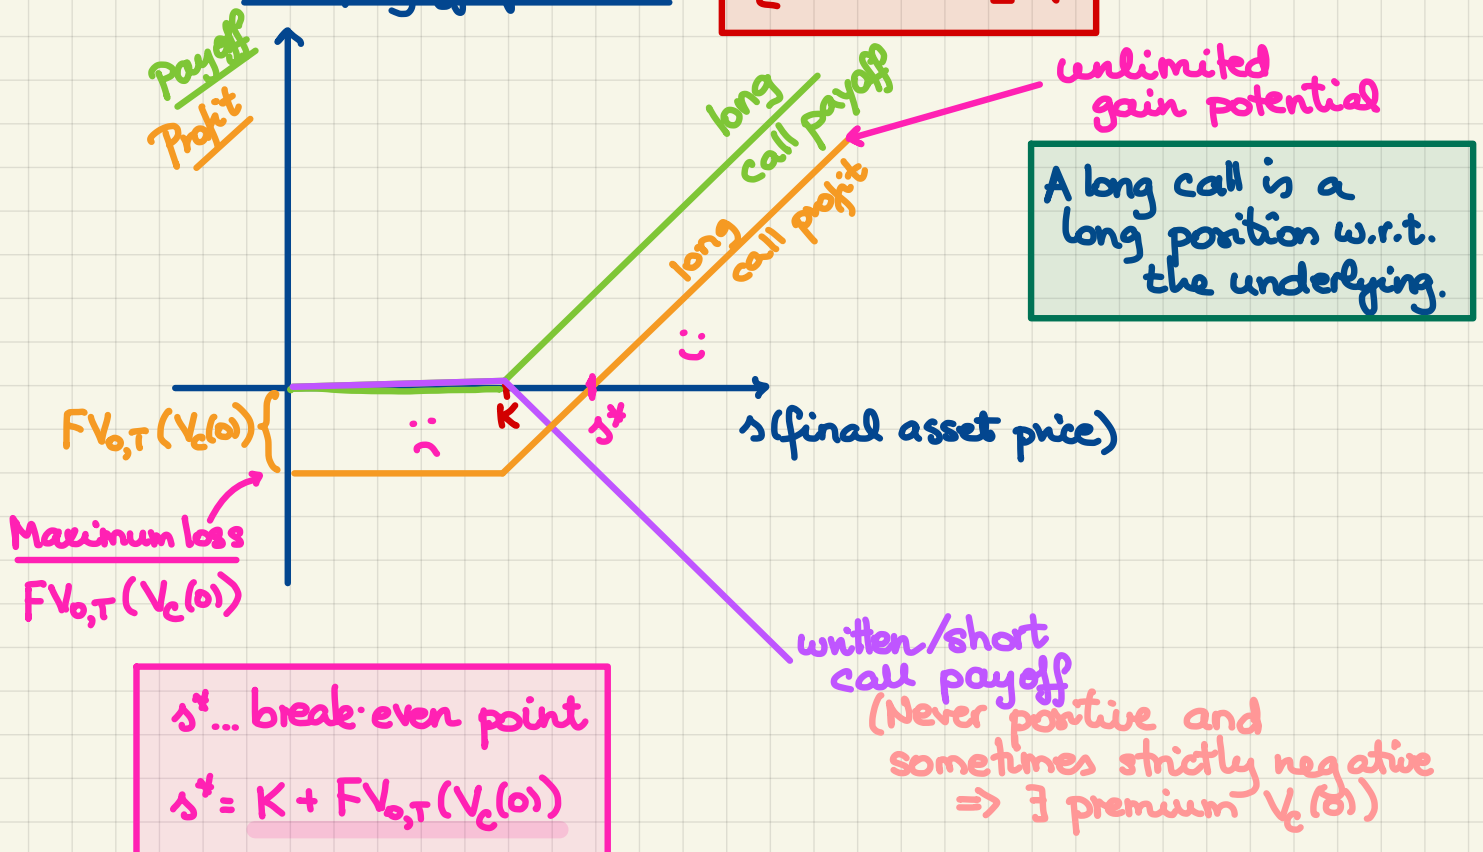 Payoff
Profit
long
call payoff
long
call profit
unlimited
gain potential
A long call is a
long position w.r.t.
the underlying.
K
s*
s(final asset price)
FV₀,T(V_C(0))
Maximum loss
FV₀,T(V_C(0))
written/short
call payoff
(Never positive and
sometimes strictly negative
=> ∃ premium V_C(0))
s*... break·even point
s* = K + FV₀,T(V_C(0))